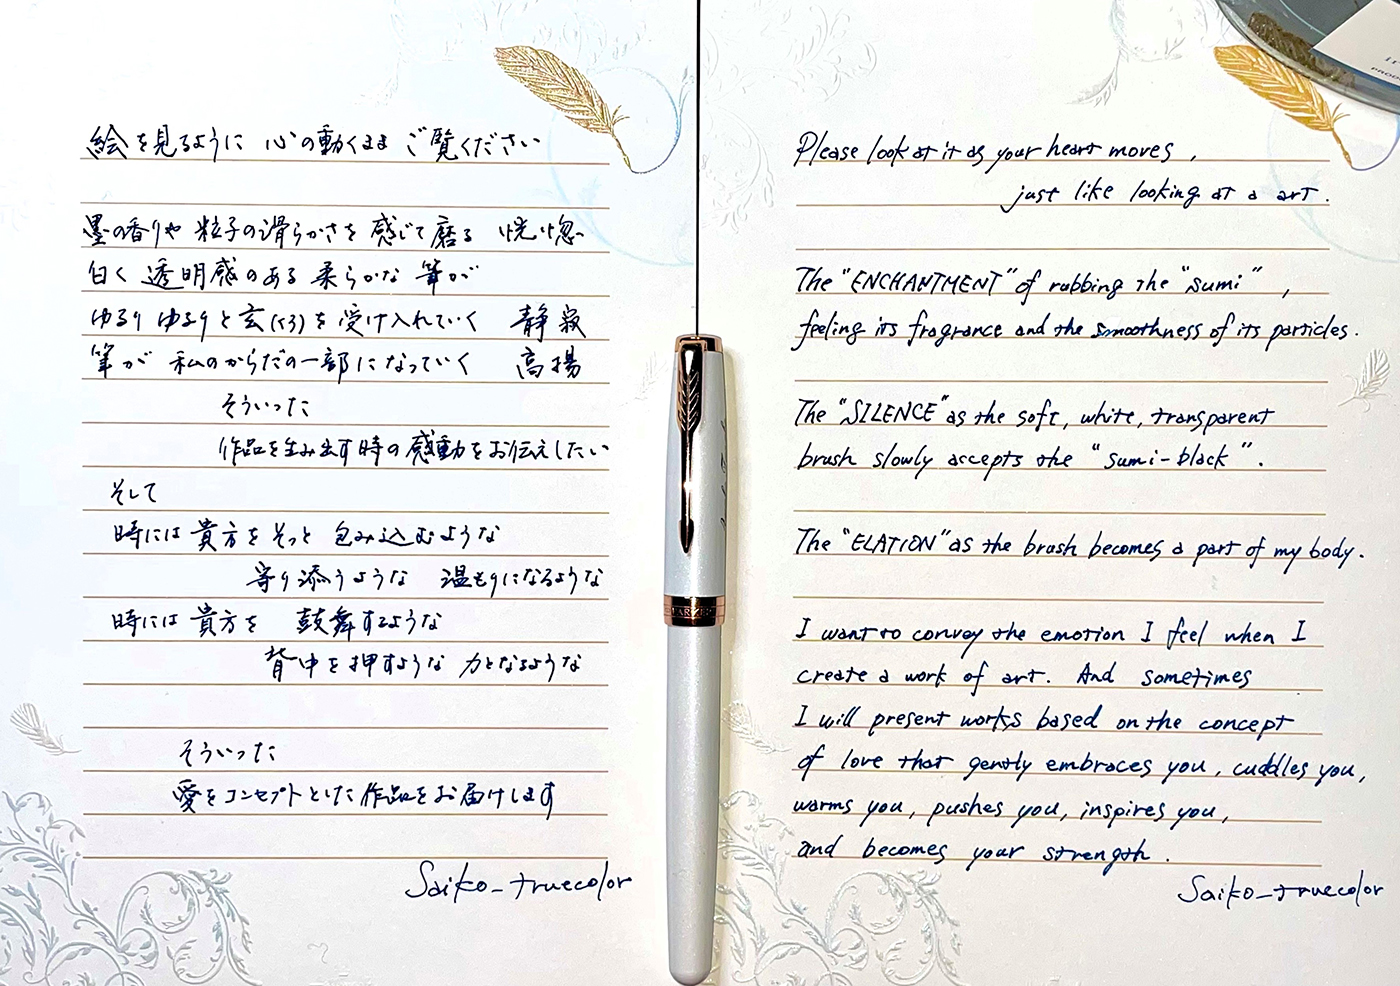 絵を見るように 心の動くまま ご覧ください
墨の香りや 粒子の滑らかさを 感じて磨る 恍惚
白く 透明感のある 柔らかな 筆が
ゆるり ゆるりと玄(くろ)を 受け入れていく 静寂
筆が 私のからだの一部になっていく 高揚
そういった
作品を生み出す時の感動をお伝えしたい
そして
時には 貴方を そっと 包み込むような
寄り添うような 温もりになるような
時には 貴方を 鼓舞するような
背中を押すような 力となるような
そういった
愛をコンセプトとした作品をお届けします
Saiko_truecolor
PARKER
Please look at it as your heart moves,
just like looking at a art.
The "ENCHANTMENT" of rubbing the "sumi",
feeling its fragrance and the smoothness of its particles.
The "SILENCE" as the soft, white, transparent
brush slowly accepts the "sumi-black".
The "ELATION" as the brush becomes a part of my body.
I want to convey the emotion I feel when I
create a work of art. And sometimes
I will present works based on the concept
of love that gently embraces you, cuddles you,
warms you, pushes you, inspires you,
and becomes your strength.
Saiko_truecolor